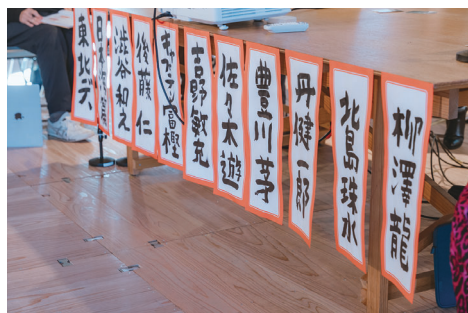 柳澤龍
北島珠水
丹健一郎
豊川茅
佐々木遊
吉野敏充
キャプテン富樫
後藤仁
渋谷和之
東北天